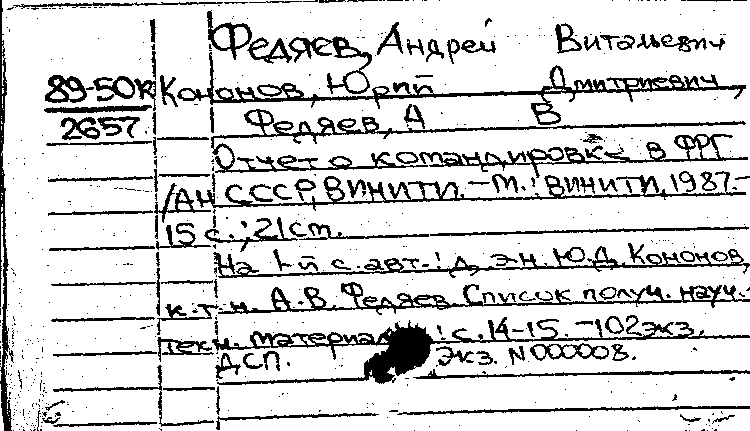 Федяев, Андрей Витальевич
89-50к Кононов, Юрий Дмитриевич,
2657 Федяев, А В
Отчет о командировке в ФРГ
/АН СССР, ВИНИТИ. – М.: ВИНИТИ, 1987.–
15 с.; 21 см.
На 1-й с. авт.: д. э. н. Ю.Д. Кононов,
к. т. н. А. В. Федяев. Список получ. науч.-
техн. материал : с. 14-15. – 102 экз.
ДСП. Экз. N 000008.